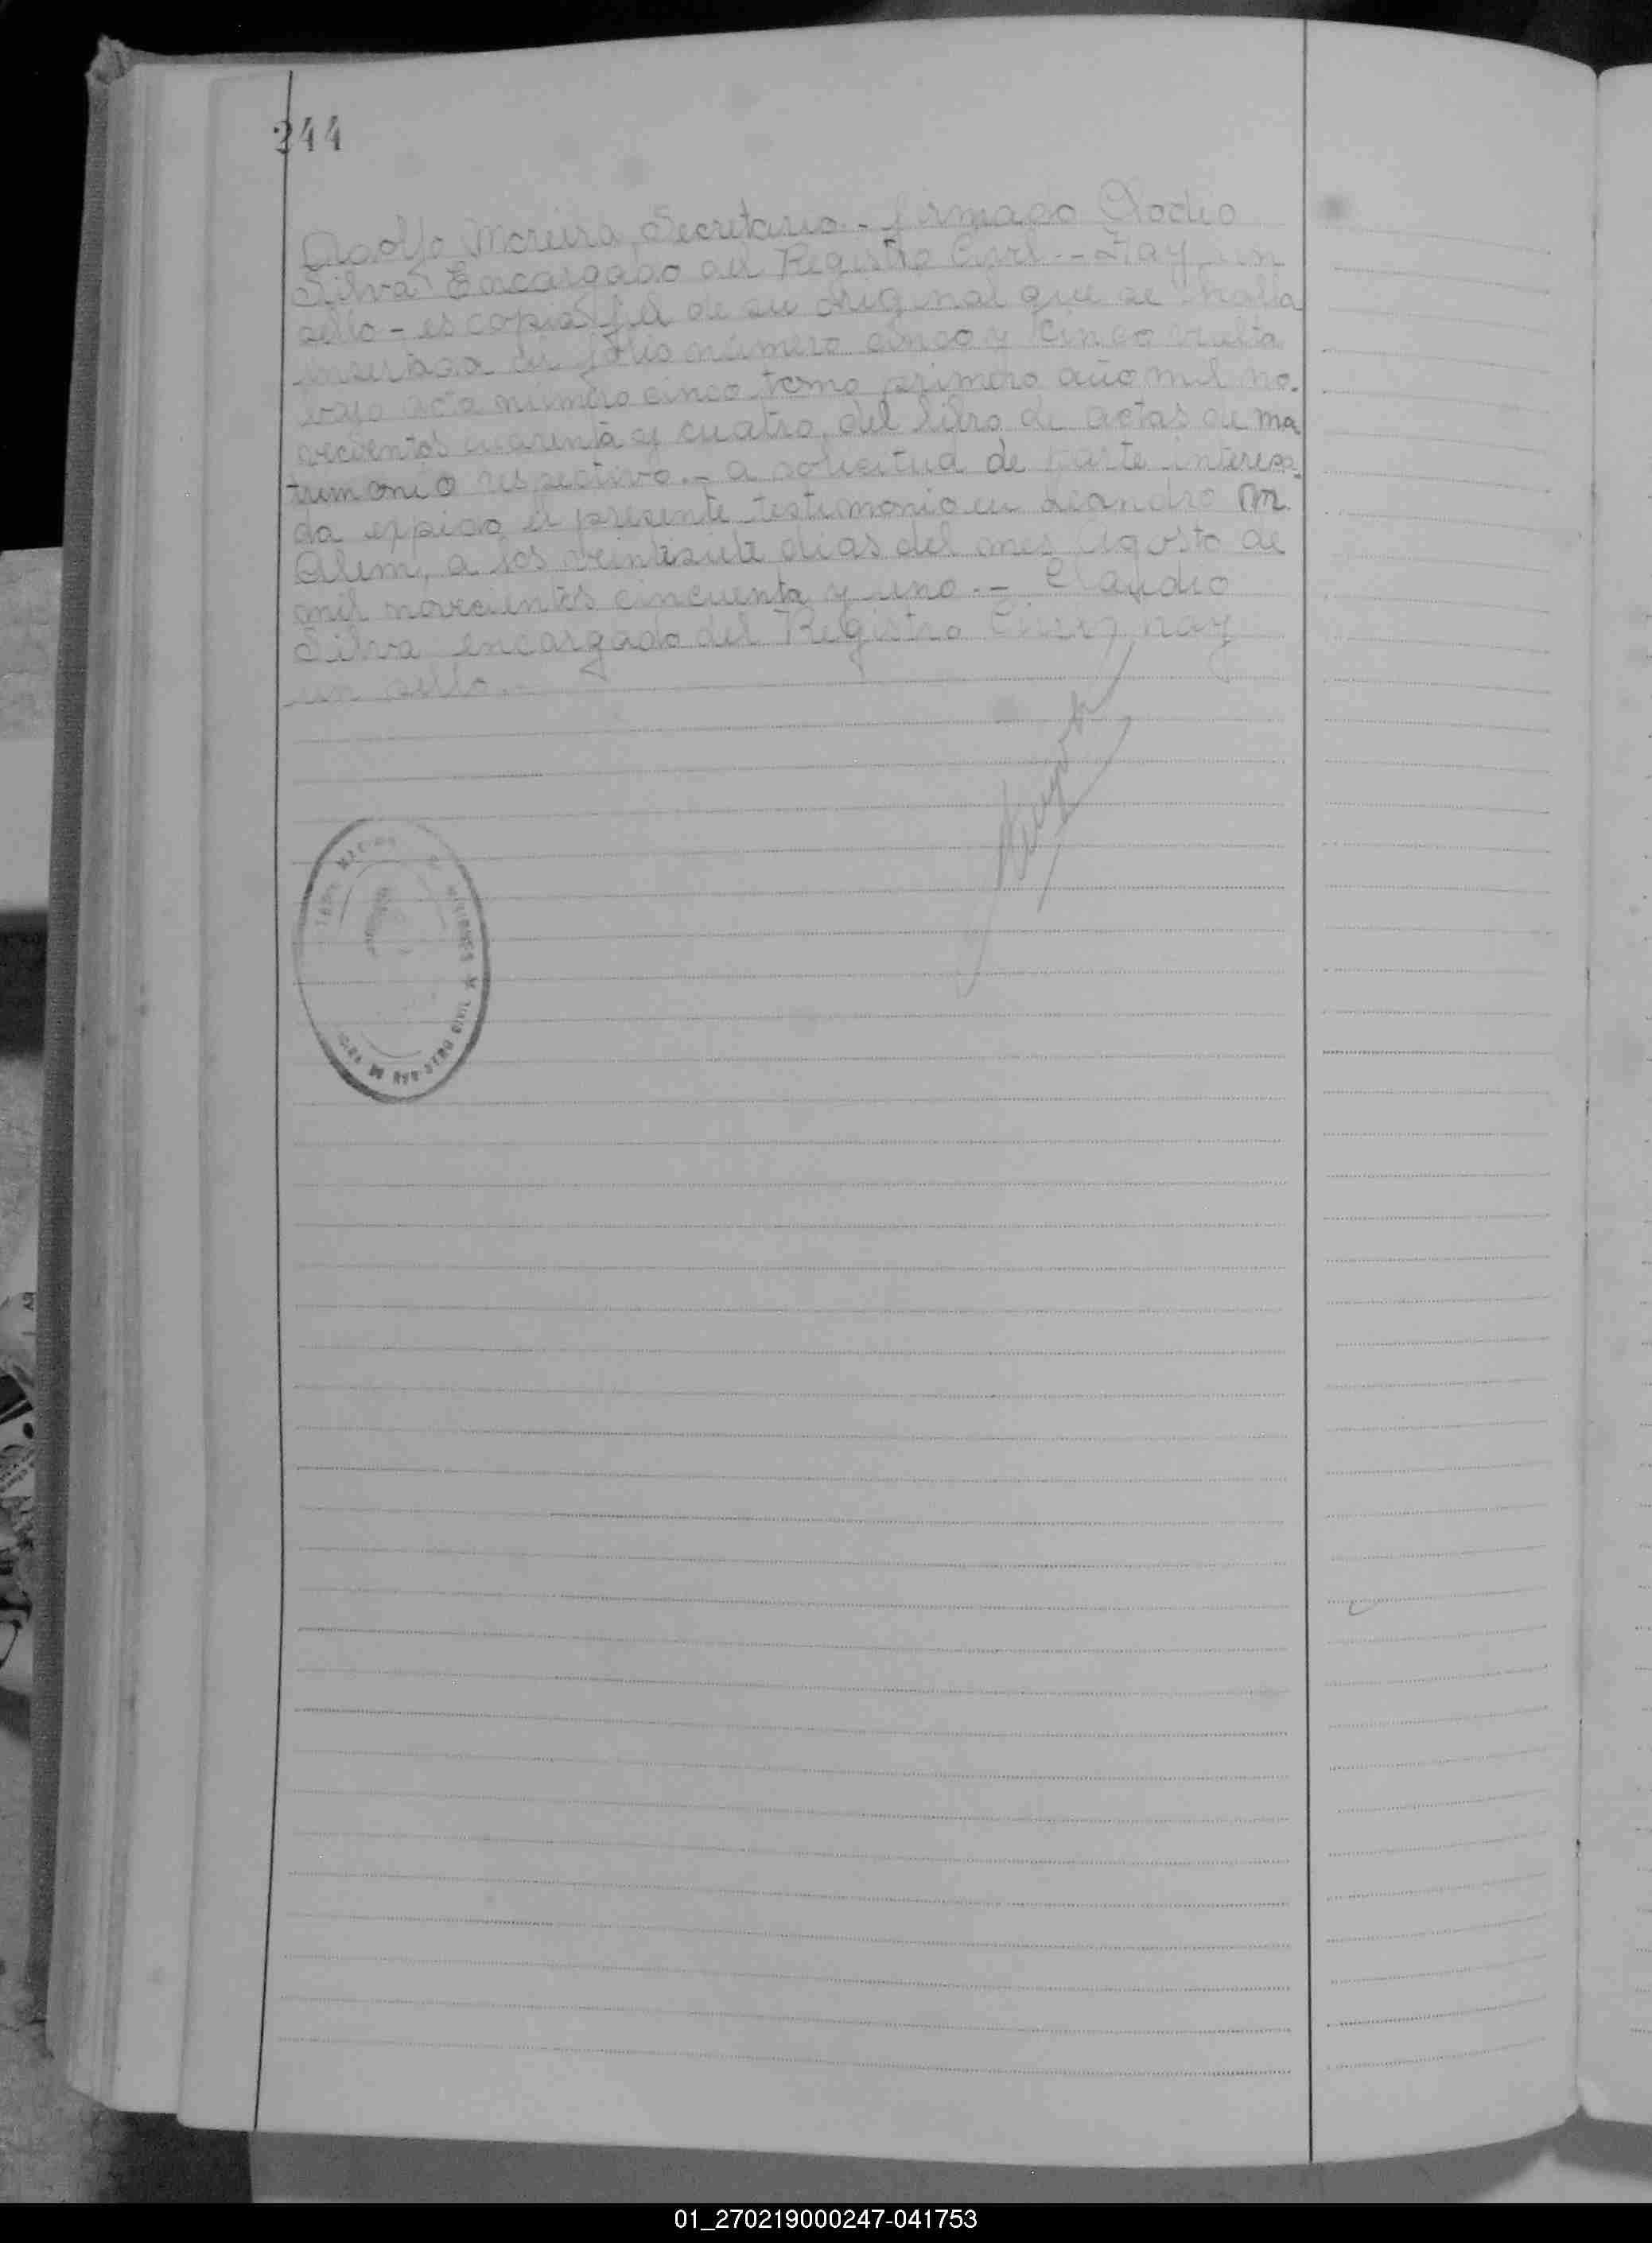 244
Adolfo Moreira, Secretario.- firmado Clodio
Silva Encargado del Registro Civil.- Hay un
sello - es copia fiel de su original que se halla
en folio número cinco y cinco vuelta
bajo acta número cinco tomo primero año mil no-
vecientos cuarenta y cuatro, del libro de actas de ma
trimonio respectivo.- a solicitud de parte interesa-
da expido el presente testimonio en Leandro N.
Alem, a los veintisiete dias del mes Agosto de
mil novecientos cincuenta y uno.- Claudio
Silva encargado del Registro Civil, hay
un sello.-
MISIONES
01_270219000247-041753